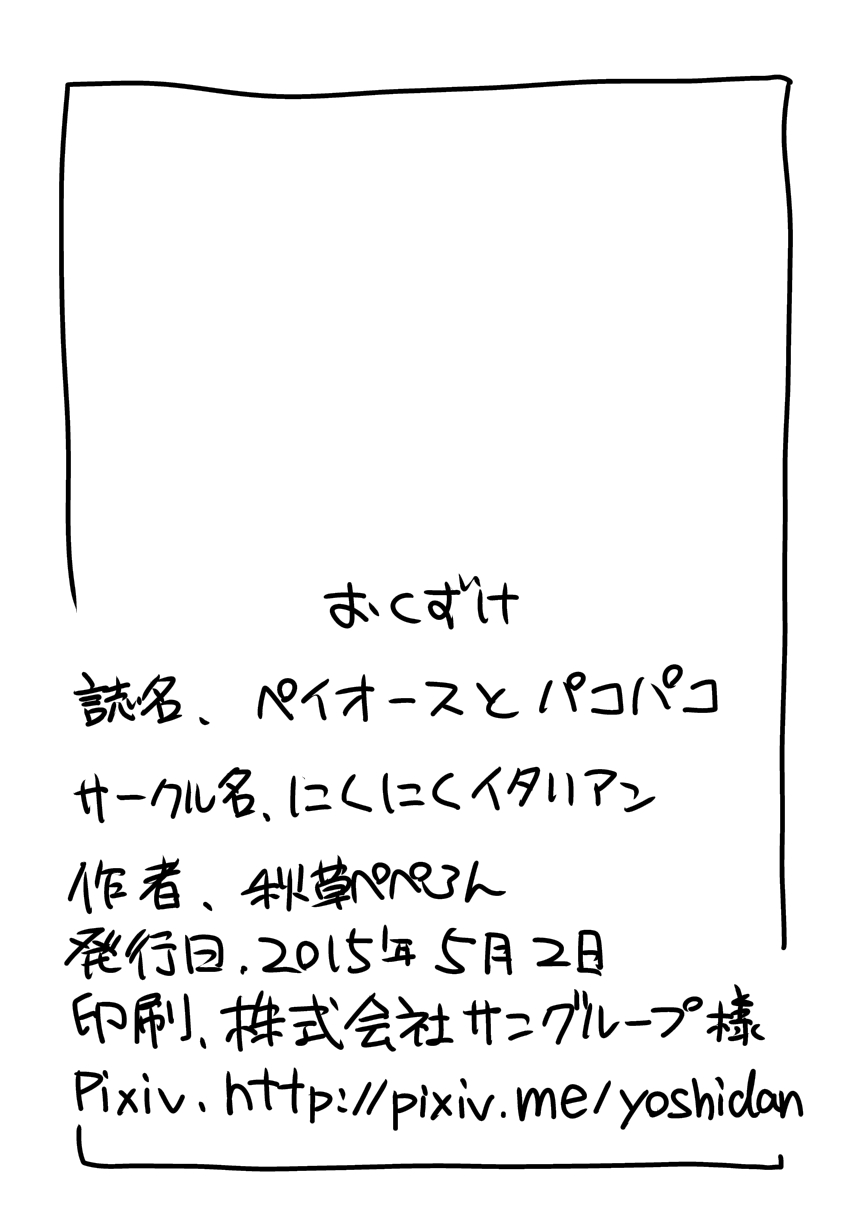 おくずけ
誌名、ペイオースとパコパコ
サークル名、にくにくイタリアン
作者、秋草ぺぺろん
発行日、2015年5月2日
印刷、株式会社サングループ様
Pixiv、http://pixiv.me/yoshidan